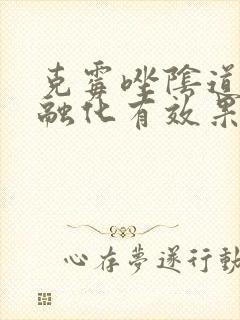 克霉唑陰道
融化有效果
心存夢遂行動